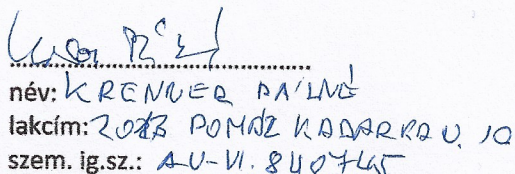 név: KRENNER PÁLNÉ
lakcím: 2013 POMÁZ KADARKA U. 10
szem. ig.sz.: AU-VI. 840745